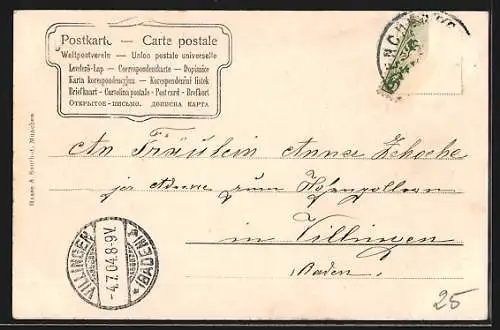 Postkarte — Carte postale
Weltpostverein — Union postale universelle
Levelező-Lap — Correspondenzkarte — Dopisnice
Karta korespondencyjna — Korespondenční lístek
Briefkaart — Cartolina postale — Post card — Brefkort
ОТКРЫТОЕ-ПИСЬМО. ДОПИСНА КАРТА
München
An Fräulein Anna Zschoche
zum Hohenzollern
in Villingen
Baden.
VILLINGEN
-4.7.04.8-9V.
(BADEN)
25